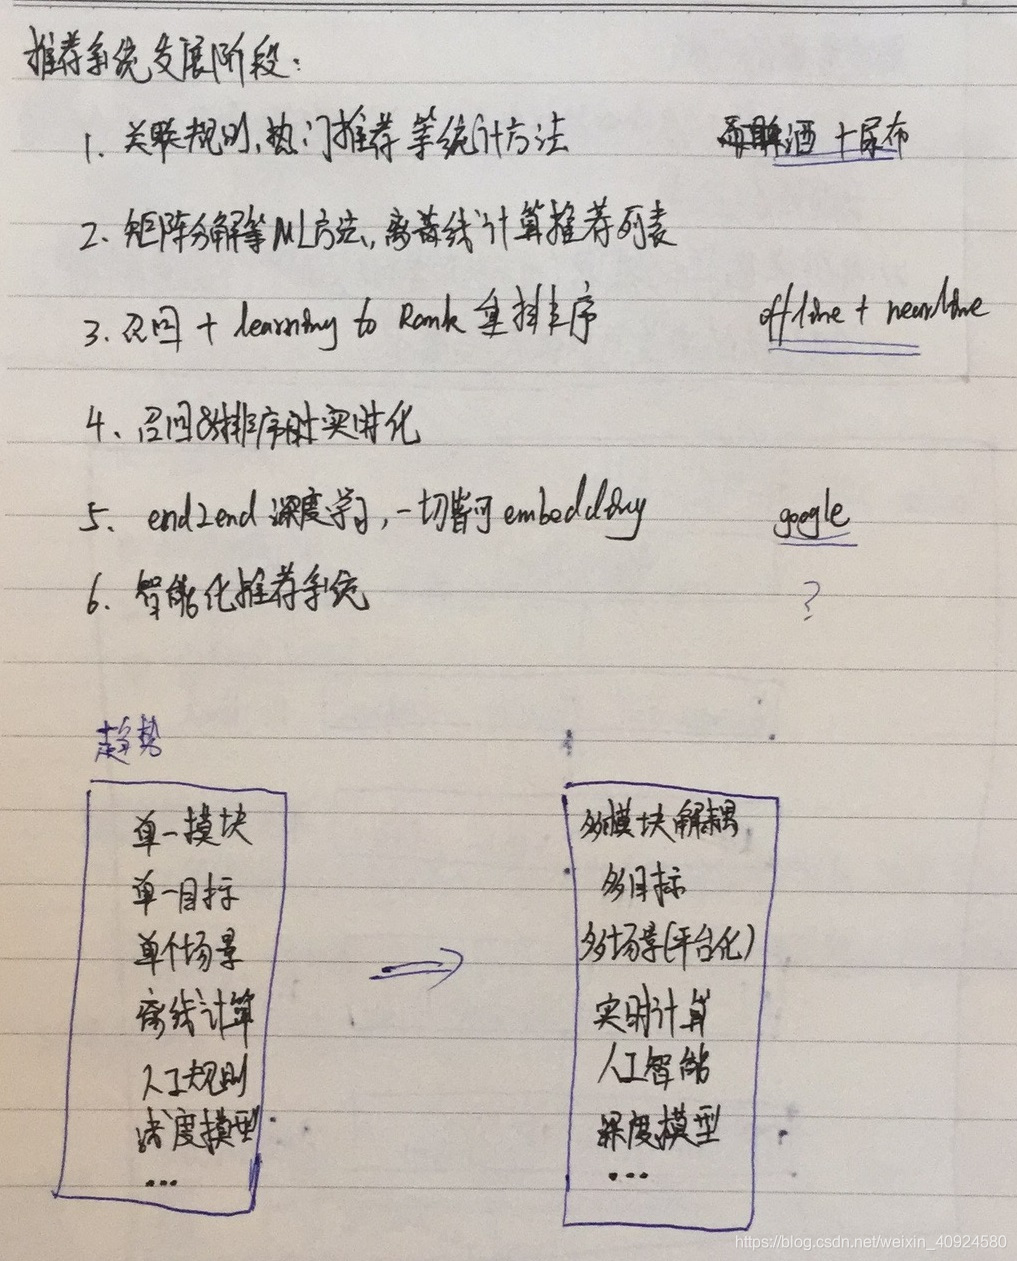 推荐系统发展阶段:
1. 关联规则,热门推荐等统计方法 啤酒+尿布
2. 矩阵分解等ML方法,离线计算推荐列表
3. 召回 + learning to Rank 重排序 offline + nearline
4、召回&排序 实时化
5、end2end 深度学习,一切皆可 embedding google
6. 智能化推荐系统 ?
趋势
单一模块 多模块解耦
单一目标 多目标
单个场景 多场景(平台化)
离线计算 实时计算
人工规则 人工智能
浅度模型 深度模型
... ...
https://blog.csdn.net/weixin_40924580